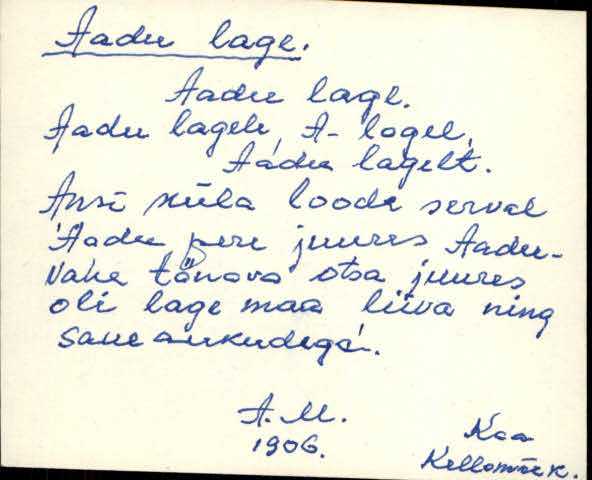 Aadu lage.
Aadu lage.
Aadu lagele, A- lagel,
Aadu lagelt.
Ansi küla loode serval
Aadu pere juures Aadu-
vahe tänava otsa juures
oli lage maa liiva ning
saue aukudega.
A. M.
1906.
Kaa
Kellamäe k.